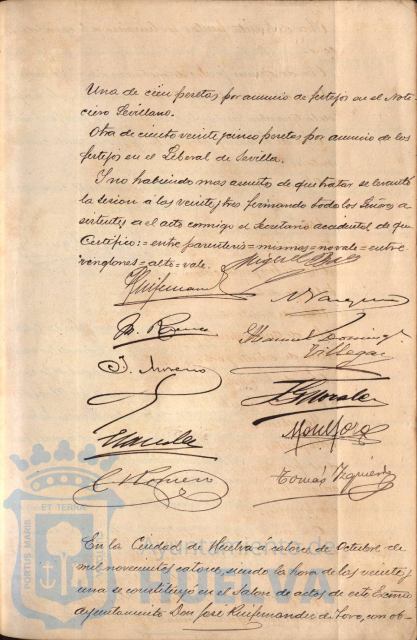 Una de cien pesetas por anuncio de festejos en el Noti
ciero Sevillano.
Otra de ciento veinte y cinco pesetas por anuncio de los
festejos en el Liberal de Sevilla.
Y no habiendo mas asuntos de que tratar se levantó
la sesion a las veinte y tres firmando todos los Señores a
sistentes a el acto conmigo el Secretario accidental de que
Certifico: = entre parentesis = mismos = no vale = entre
renglones = alto = vale.
Miguel
N. Vazquez
M.
Manuel Domingz
Villegas
J. Moreno
J. Gonzalez
Monforo
C. Romero
Tomás Izquierdo
PORTUS MARIS ET TERRAE
Ayuntamiento de
HUELVA
En la Ciudad de Huelva á catorce de Octubre de
mil novecientos catorce siendo la hora de las veinte y
una se constituyó en el Salon de actos de este Excmo
Ayuntamiento Don José Ruifernandez de Toro, con ob-